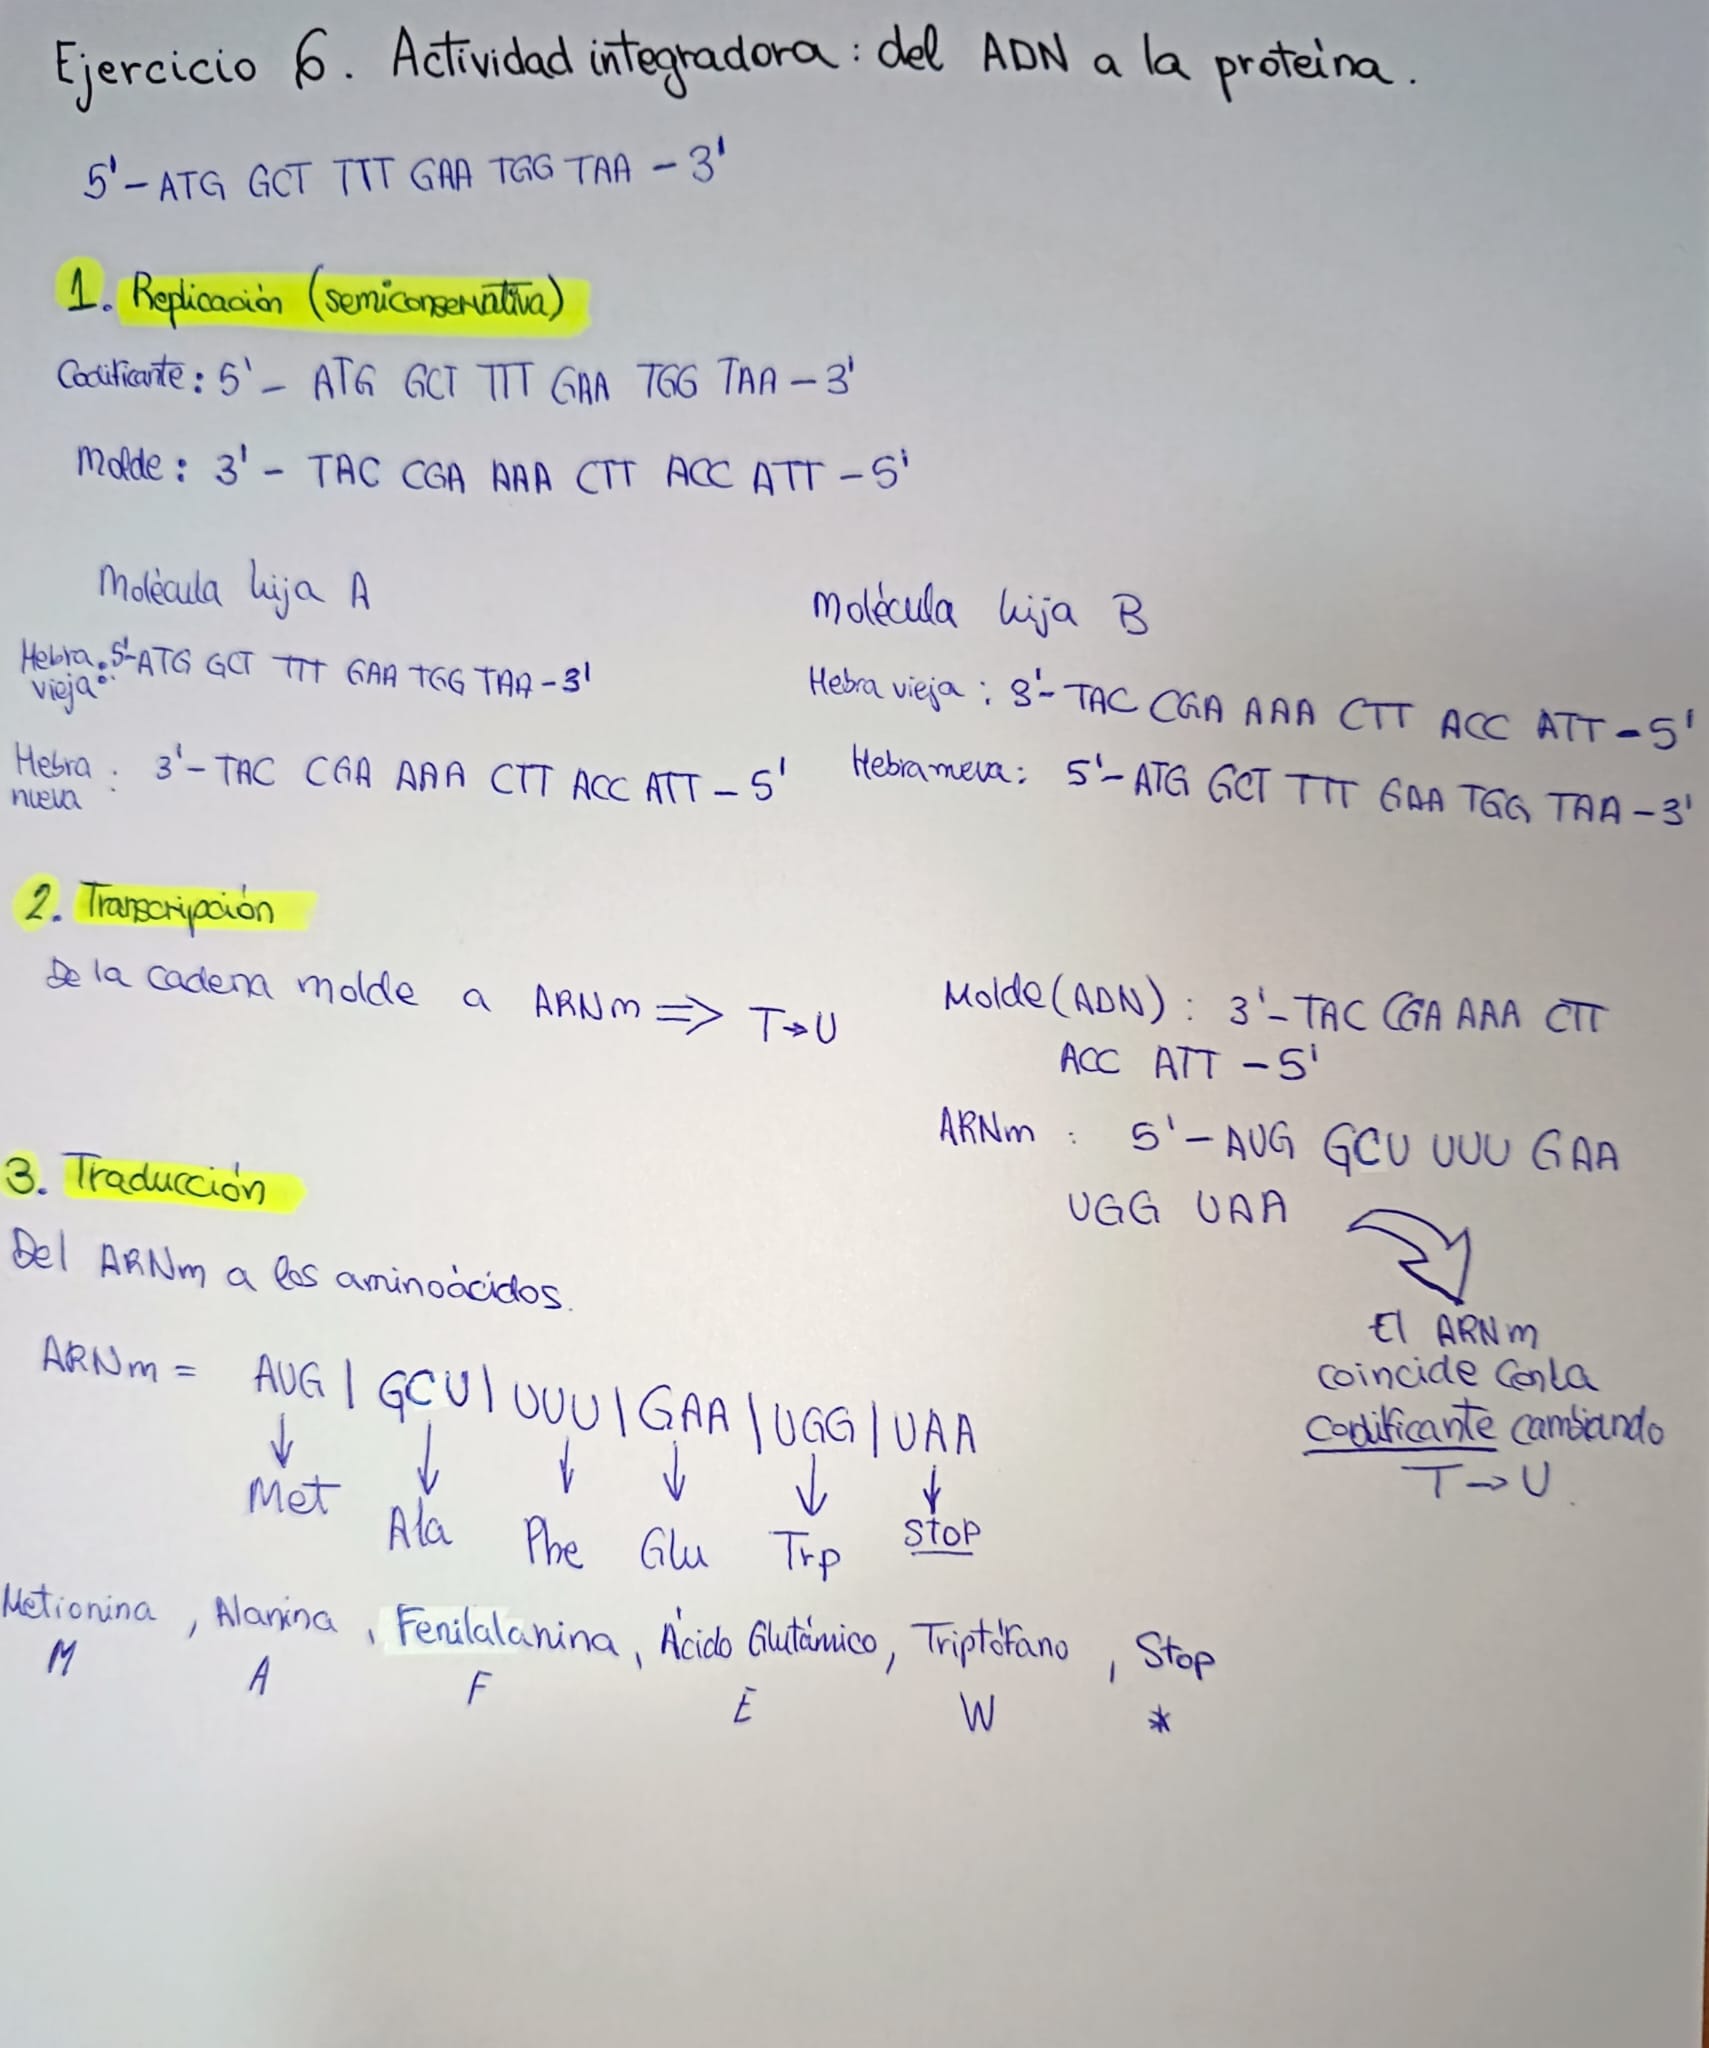 Ejercicio 6. Actividad integradora: del ADN a la proteina.
5'- ATG GCT TTT GAA TGG TAA - 3'
1. Replicación (semiconservativa)
Codificante: 5' - ATG GCT TTT GAA TGG TAA - 3'
Molde: 3' - TAC CGA AAA CTT ACC ATT - 5'
Molécula hija A
Hebra vieja: 5'-ATG GCT TTT GAA TGG TAA - 3'
Hebra nueva: 3'- TAC CGA AAA CTT ACC ATT - 5'
Molécula hija B
Hebra vieja: 3'- TAC CGA AAA CTT ACC ATT - 5'
Hebra nueva: 5'- ATG GCT TTT GAA TGG TAA - 3'
2. Transcripción
De la cadena molde a ARNm => T→U
Molde (ADN): 3'- TAC CGA AAA CTT
ACC ATT - 5'
ARNm : 5'- AUG GCU UUU GAA
UGG UAA
El ARNm
coincide con la
codificante cambiando
T → U.
3. Traducción
Del ARNm a los aminoácidos.
ARNm = AUG | GCU | UUU | GAA | UGG | UAA
Met Ala Phe Glu Trp stop
Metionina, Alanina, Fenilalanina, Ácido Glutámico, Triptófano, Stop
M A F E W *